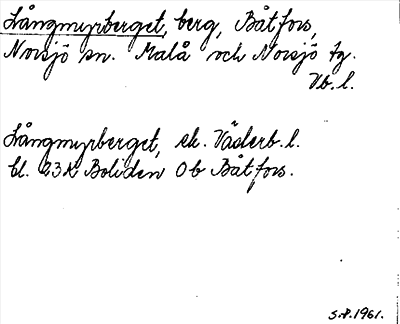 Långmyrberget, berg, Båtfors,
Norsjö sn. Malå och Norsjö tg.
Vb. l.
Långmyrberget, ek. Västerb. l.
bl. 23K Boliden 0b Båtfors.
S.P. 1961.